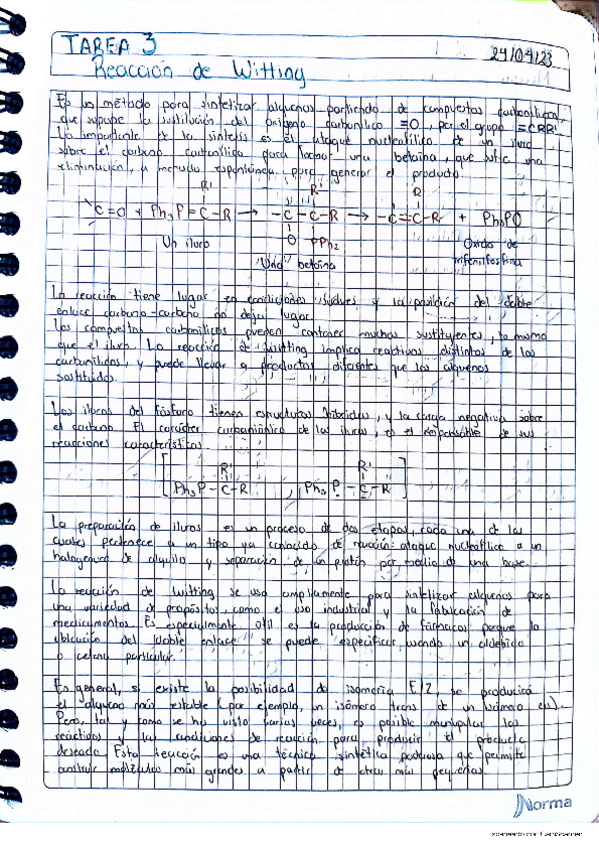 TAREA 3
24/04/23
Reacción de Witting
Es un método para sintetizar alquenos partiendo de compuestos carbonílicos,
que supone la sustitución del oxígeno carbonílico =O, por el grupo =CRR'.
Lo importante de la síntesis es el ataque nucleofílico de un iluro
sobre el carbono carbonílico para formar una betaína, que sufre una
eliminación, a menudo espontánea, para generar el producto.
R' R' R
C=O + Ph₃P=C-R → -C-C-R → -C=C-R + Ph₃PO
Un iluro O PPh₂ Oxido de
"Una" betaína trifenilfosfina
La reacción tiene lugar en condiciones suaves y la posición del doble
enlace carbono-carbono no deja lugar.
Los compuestos carbonílicos pueden contener muchos sustituyentes, lo mismo
que el iluro. La reacción de Witting implica reactivos distintos de los
carbonílicos, y puede llevar a productos diferentes que los alquenos
sustituidos.
Los iluros del fósforo tienen estructuras híbridas, y la carga negativa sobre
el carbono. El carácter carbaniónico de los iluros, es el responsable de sus
reacciones características
R' R'
Ph₃P-C-R , Ph₃P-C-R
La preparación de iluros es un proceso de dos etapas, cada una de las
cuales pertenece a un tipo ya conocido de reacción: ataque nucleofílico a un
halogenuro de alquilo y separación de un protón por medio de una base.
La reacción de Witting se usa ampliamente para sintetizar alquenos para
una variedad de propósitos como el uso industrial y la fabricación de
medicamentos. Es especialmente útil es la producción de fármacos porque la
ubicación del "doble enlace" se puede especificar usando un aldehído
o cetona particular.
En general, si existe la posibilidad de isomería E/Z, se producirá
el alqueno más estable (por ejemplo, un isómero trans de un isómero cis).
Pero, tal y como se ha visto varias veces, es posible manipular los
reactivos y las condiciones de reacción para producir el producto
deseado. Esta reacción es una técnica sintética poderosa que permite
construir moléculas más grandes a partir de otras más pequeñas.
Norma